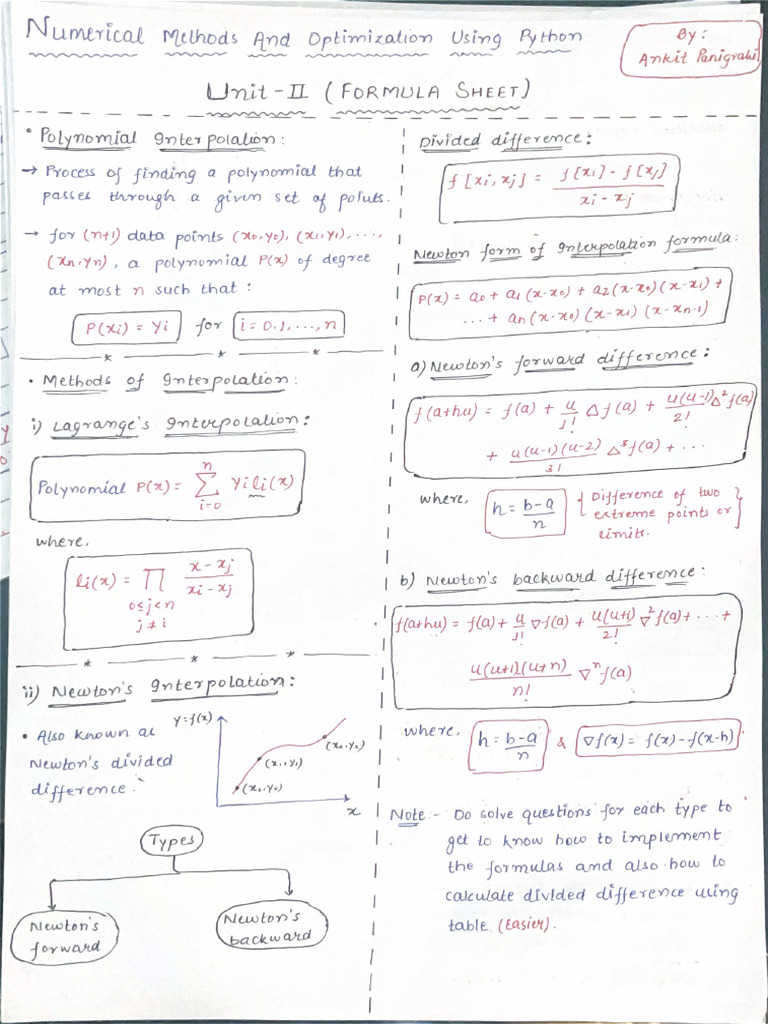 Numerical Methods And Optimization Using Python
By:
Ankit Panigrahi
Unit-II (FORMULA SHEET)
• Polynomial Interpolation:
→ Process of finding a polynomial that
passes through a given set of points.
→ for (n+1) data points (x0,y0), (x1,y1), ...,
(xn,yn), a polynomial P(x) of degree
at most n such that:
P(xi) = yi for i = 0,1,...,n
• Methods of Interpolation:
i) Lagrange's Interpolation:
Polynomial P(x) = Σ yi li(x)
n
i=0
where,
li(x) = ∏ (x-xj)/(xi-xj)
0≤j<n
j≠i
ii) Newton's Interpolation:
• Also known as
Newton's divided
difference.
y=f(x)
(x0,y0)
(x1,y1)
(x0,y0)
x
Types
Newton's
forward
Newton's
backward
Divided difference:
f[xi,xj] = (f[xi]-f[xj])/(xi-xj)
Newton form of Interpolation formula:
P(x) = a0 + a1(x-x0) + a2(x-x0)(x-x1) +
... + an(x-x0)(x-x1)(x-xn-1)
a) Newton's forward difference:
f(a+hu) = f(a) + u/1! Δf(a) + u(u-1)/2! Δ²f(a)
+ u(u-1)(u-2)/3! Δ³f(a) + ...
where, h = (b-a)/n {Difference of two
extreme points or
limits.}
b) Newton's backward difference:
f(a+hu) = f(a) + u/1! ∇f(a) + u(u+1)/2! ∇²f(a) + ... +
u(u+1)(u+n)/n! ∇ⁿf(a)
where, h = (b-a)/n & ∇f(x) = f(x)-f(x-h)
Note:- Do solve questions for each type to
get to know how to implement
the formulas and also how to
calculate divided difference using
table (Easier).